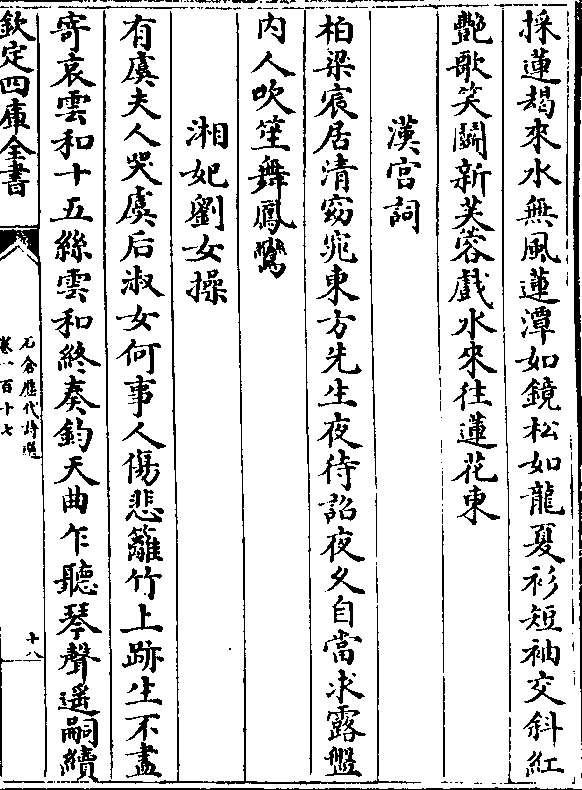 採蓮朅來水無風蓮潭如鏡松如龍夏衫短袖交斜紅
艷歌笑鬭新芙蓉戲水來往蓮花東
漢宮詞
柏梁宸居清窈窕東方先生夜待詔夜久自當求露盤
内人吹笙舞鳳鸞
湘妃劉女操
有虞夫人哭虞后淑女何事人傷悲籬竹上跡生不盡
寄哀雲和十五絲雲和終奏鈞天曲乍聽琴聲遥嗣續
欽定四庫全書
石倉歷代詩選
卷一百十七
十八